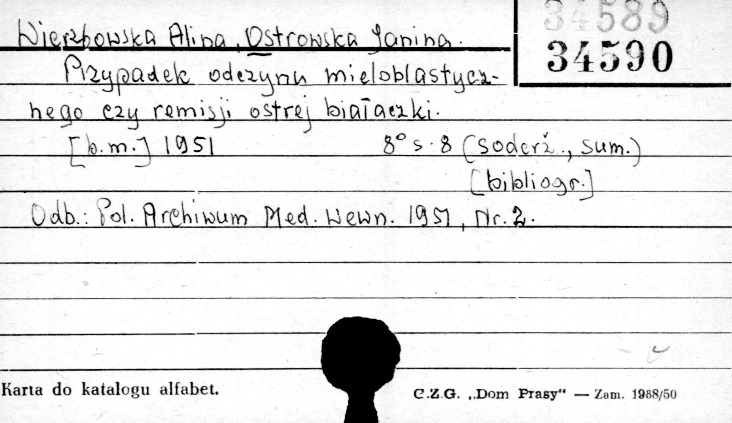 34589
Wierzbowska Alina, Ostrowska Janina.
34590
Przypadek odczynu mieloblastycz-
nego czy remisji ostrej białaczki.
[b.m.] 1951 8° s. 8 (soderż., sum.)
[bibliogr.]
Odb.: Pol. Archiwum Med. Wewn. 1951, Nr. 2.
Karta do katalogu alfabet.
C.Z.G. „Dom Prasy“ — Zam. 1988/50